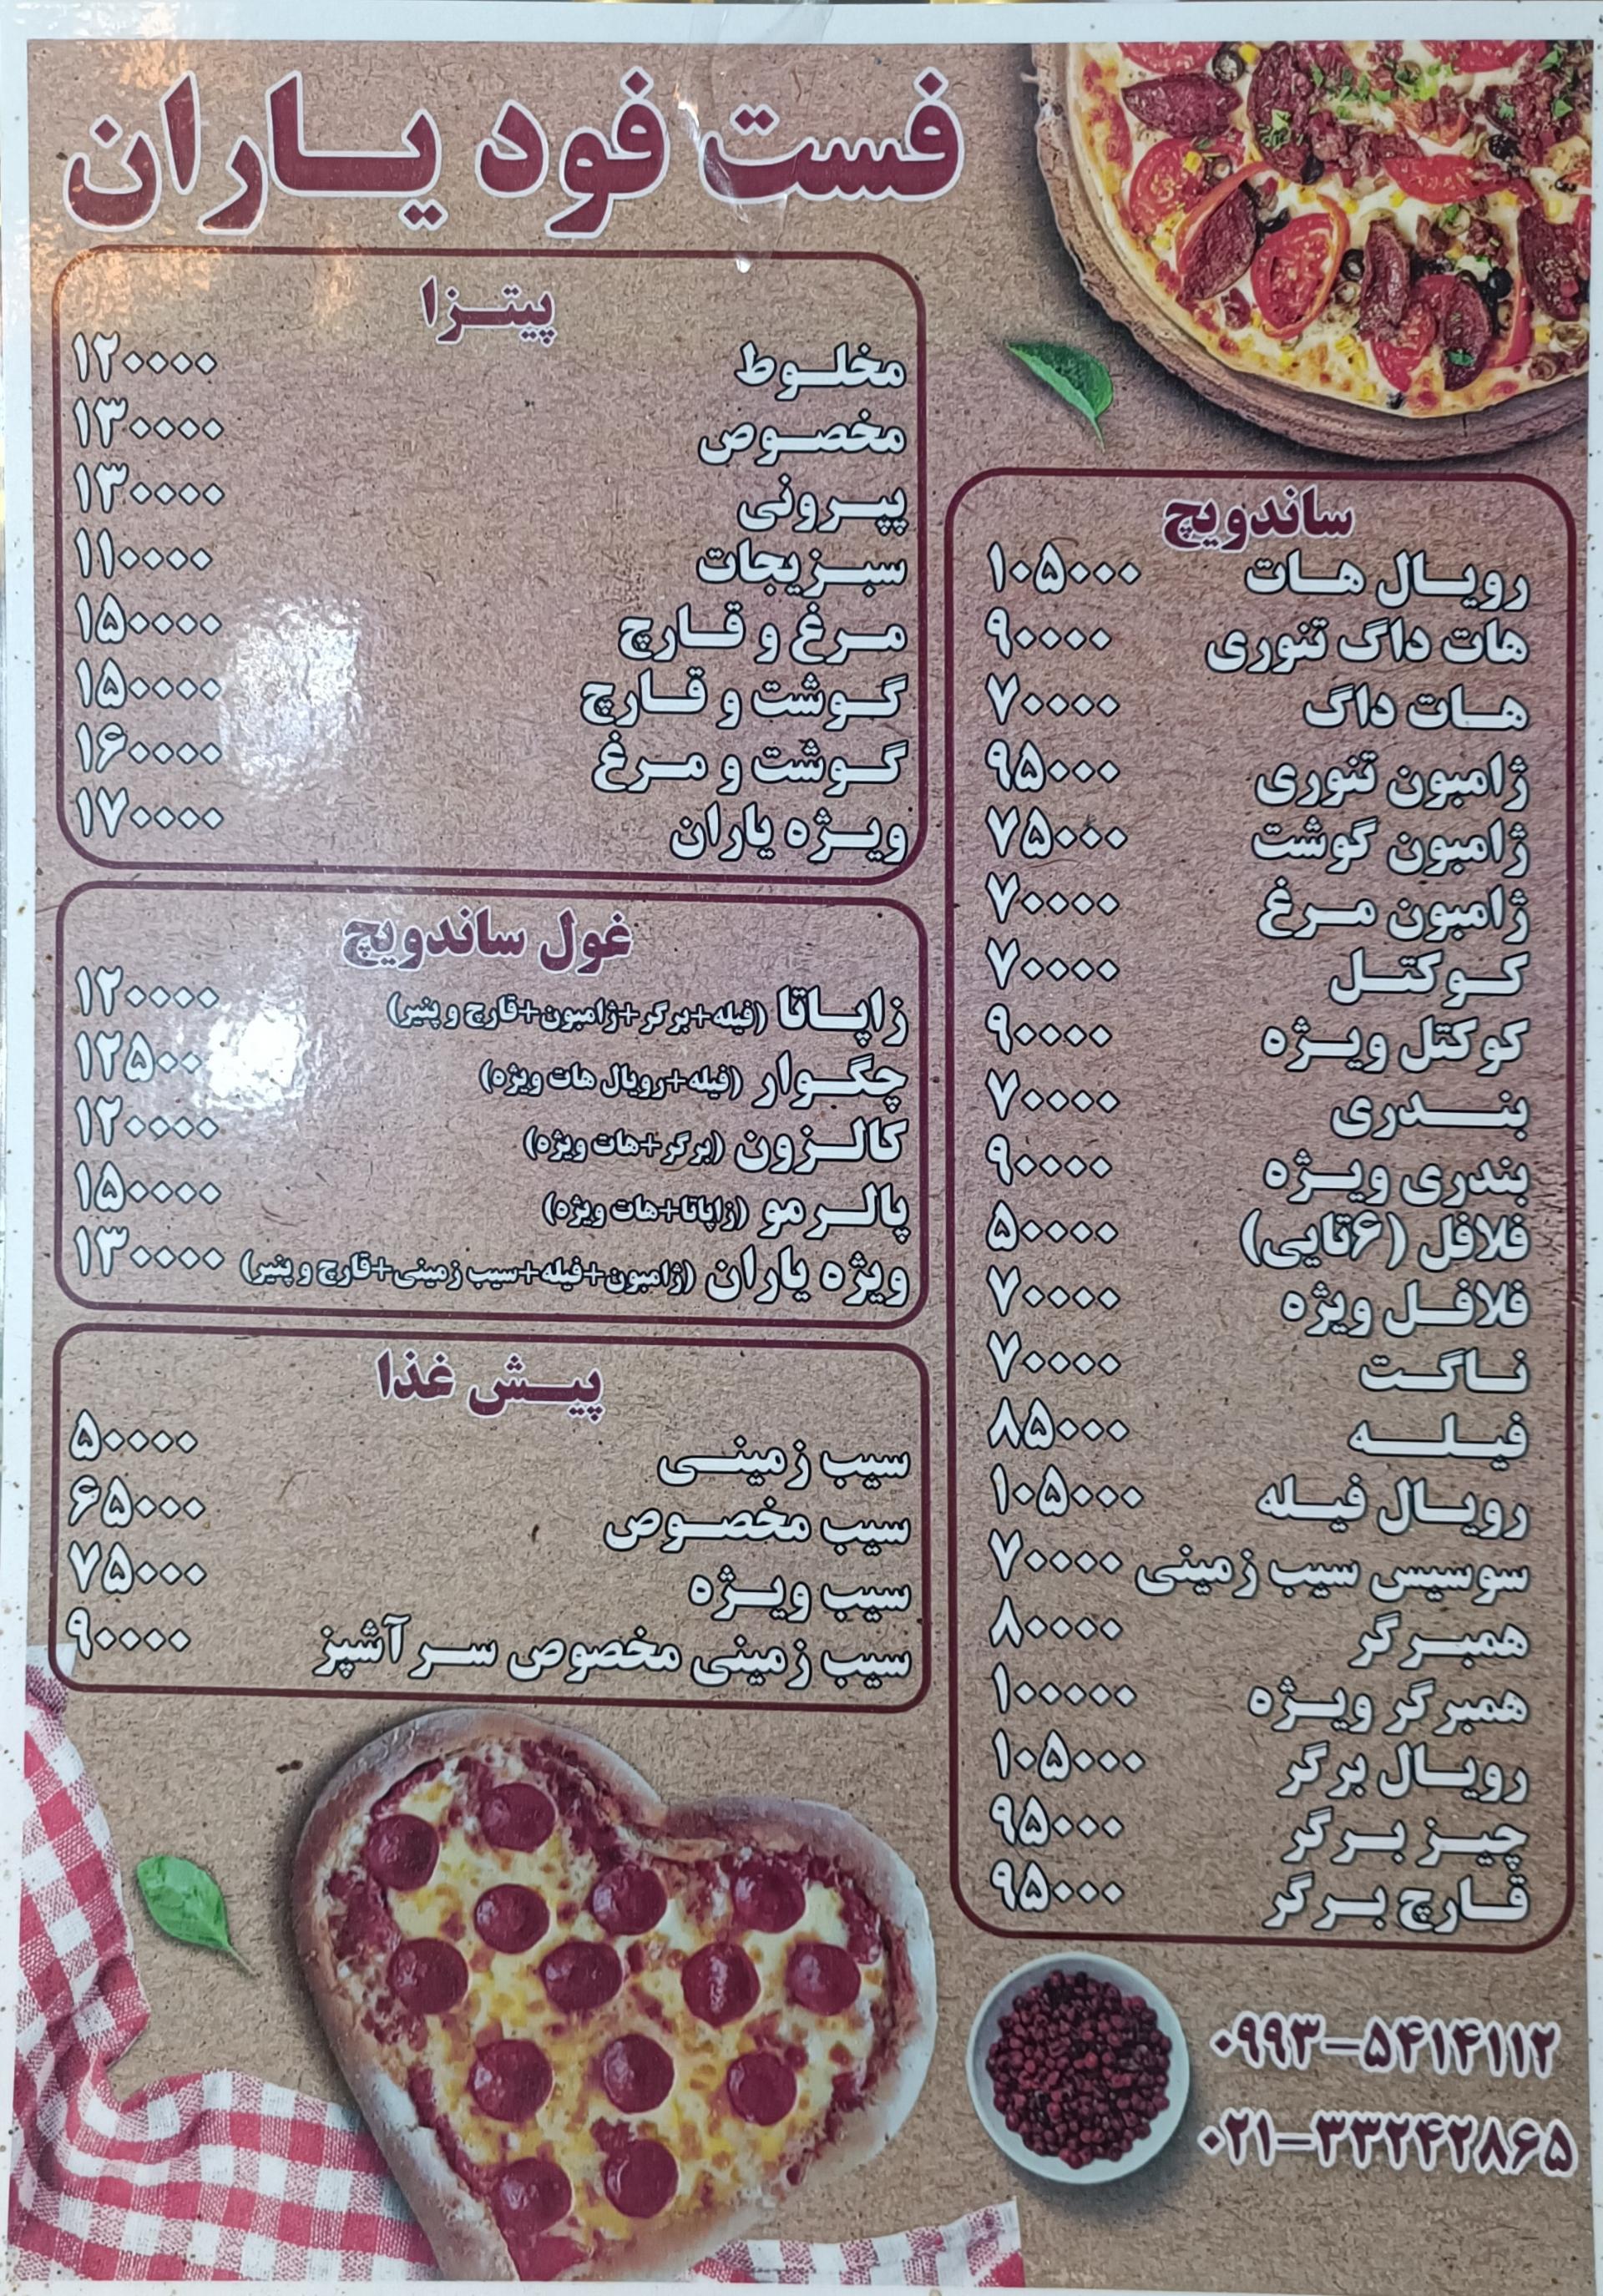 فست فود یاران
پیتزا
مخلوط ۱۲۰۰۰۰
مخصوص ۱۳۰۰۰۰
پپرونی ۱۳۰۰۰۰
سبزیجات ۱۱۰۰۰۰
مرغ و قارچ ۱۵۰۰۰۰
گوشت و قارچ ۱۵۰۰۰۰
گوشت و مرغ ۱۶۰۰۰۰
ویژه یاران ۱۷۰۰۰۰
غول ساندویچ
زاپاتا (فیله+برگر+ژامبون+قارچ و پنیر) ۱۲۰۰۰۰
چگوار (فیله+رویال هات ویژه)
کالزون (برگر+هات ویژه) ۱۲۰۰۰۰
پالرمو (زاپاتا+هات ویژه) ۱۵۰۰۰۰
ویژه یاران (ژامبون+فیله+سیب زمینی+قارچ و پنیر) ۱۳۰۰۰۰
پیش غذا
سیب زمینی ۵۰۰۰۰
سیب مخصوص ۶۵۰۰۰
سیب ویژه ۷۵۰۰۰
سیب زمینی مخصوص سر آشپز ۹۰۰۰۰
ساندویچ
رویال هات ۱۰۵۰۰۰
هات داگ تنوری ۹۰۰۰۰
هات داگ ۷۰۰۰۰
ژامبون تنوری ۹۵۰۰۰
ژامبون گوشت ۷۵۰۰۰
ژامبون مرغ ۷۰۰۰۰
کوکتل ۷۰۰۰۰
کوکتل ویژه ۹۰۰۰۰
بندری ۷۰۰۰۰
بندری ویژه ۹۰۰۰۰
فلافل (۶تایی) ۵۰۰۰۰
فلافل ویژه ۷۰۰۰۰
ناگت ۷۰۰۰۰
فیله ۸۵۰۰۰
رویال فیله ۱۰۵۰۰۰
سوسیس سیب زمینی ۷۰۰۰۰
همبرگر ۸۰۰۰۰
همبرگر ویژه ۱۰۰۰۰۰
رویال برگر ۱۰۵۰۰۰
چیز برگر ۹۵۰۰۰
قارچ برگر ۹۵۰۰۰
۰۹۹۳-۵۴۱۴۱۱۲
۰۲۱-۳۳۲۴۲۸۶۵